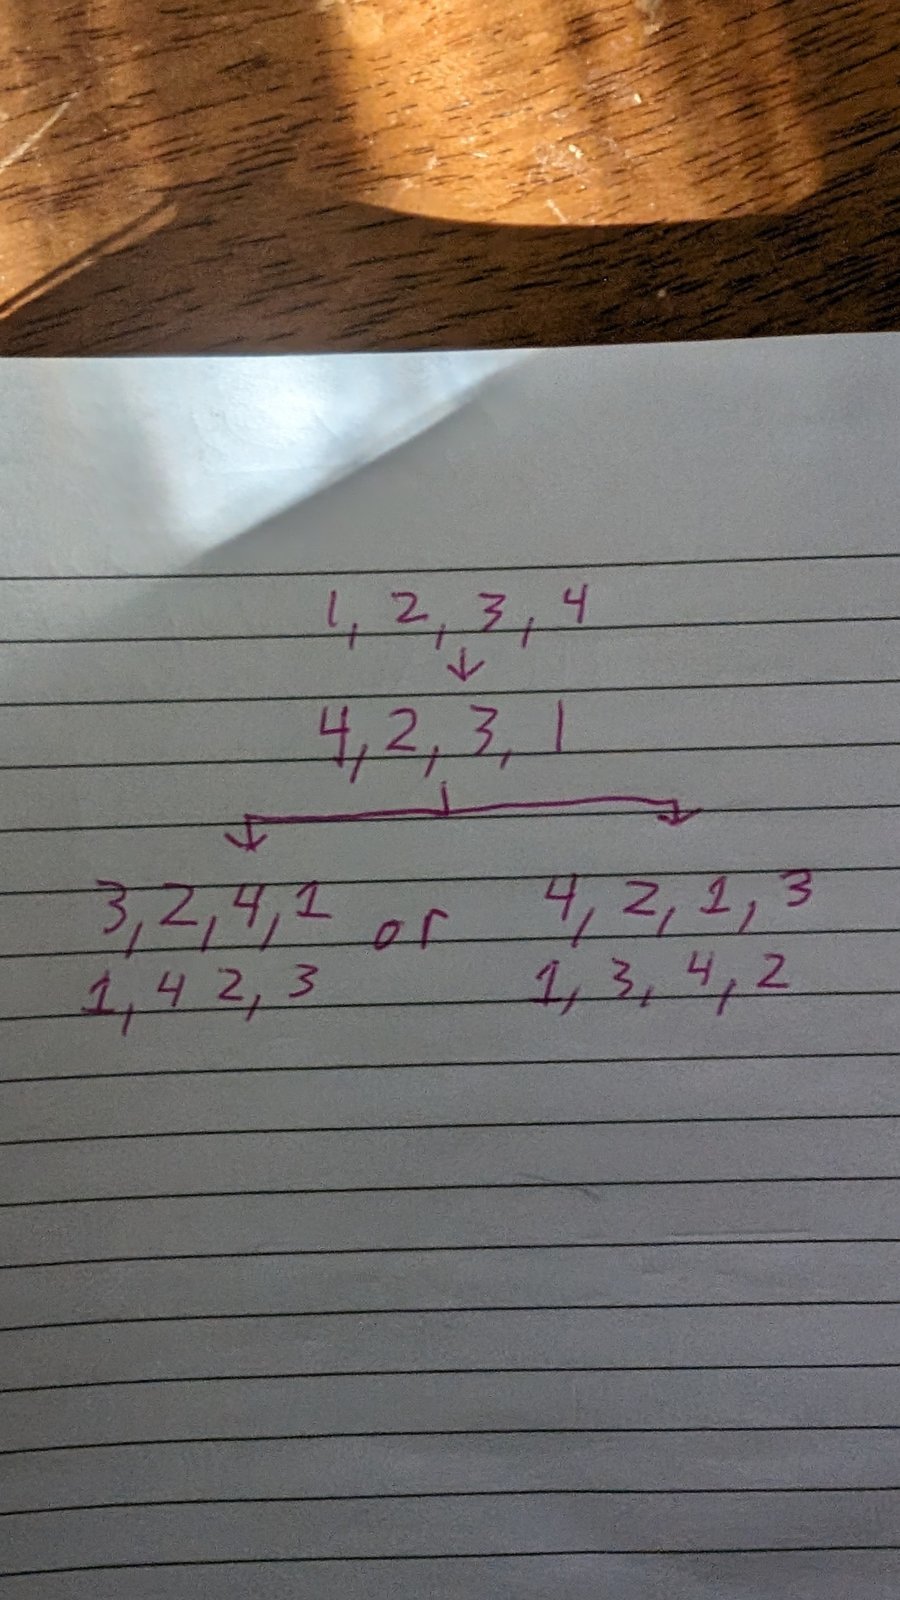 1, 2, 3, 4
↓
4, 2, 3, 1
3, 2, 4, 1 or 4, 2, 1, 3
1, 4 2, 3 1, 3, 4, 2